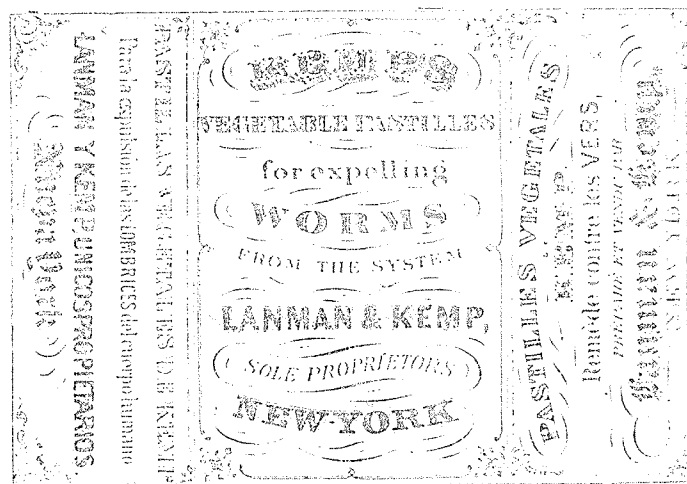 PASTILLAS VEGETALES DE KEMP
Para la espulsion de las LOMBRICES del cuerpo humano
LANMAN Y KEMP, UNICOS PROPIETARIOS.
Nueva York
KEMP'S
VEGETABLE PASTILLES
for expelling
WORMS
FROM THE SYSTEM
LANMAN & KEMP,
SOLE PROPRIETORS
NEW-YORK
PASTILLES VEGETALES
KEMP
Remède contre les VERS,
PRÉPARÉ ET VENDU PAR
Lanman & Kemp,
NEW YORK